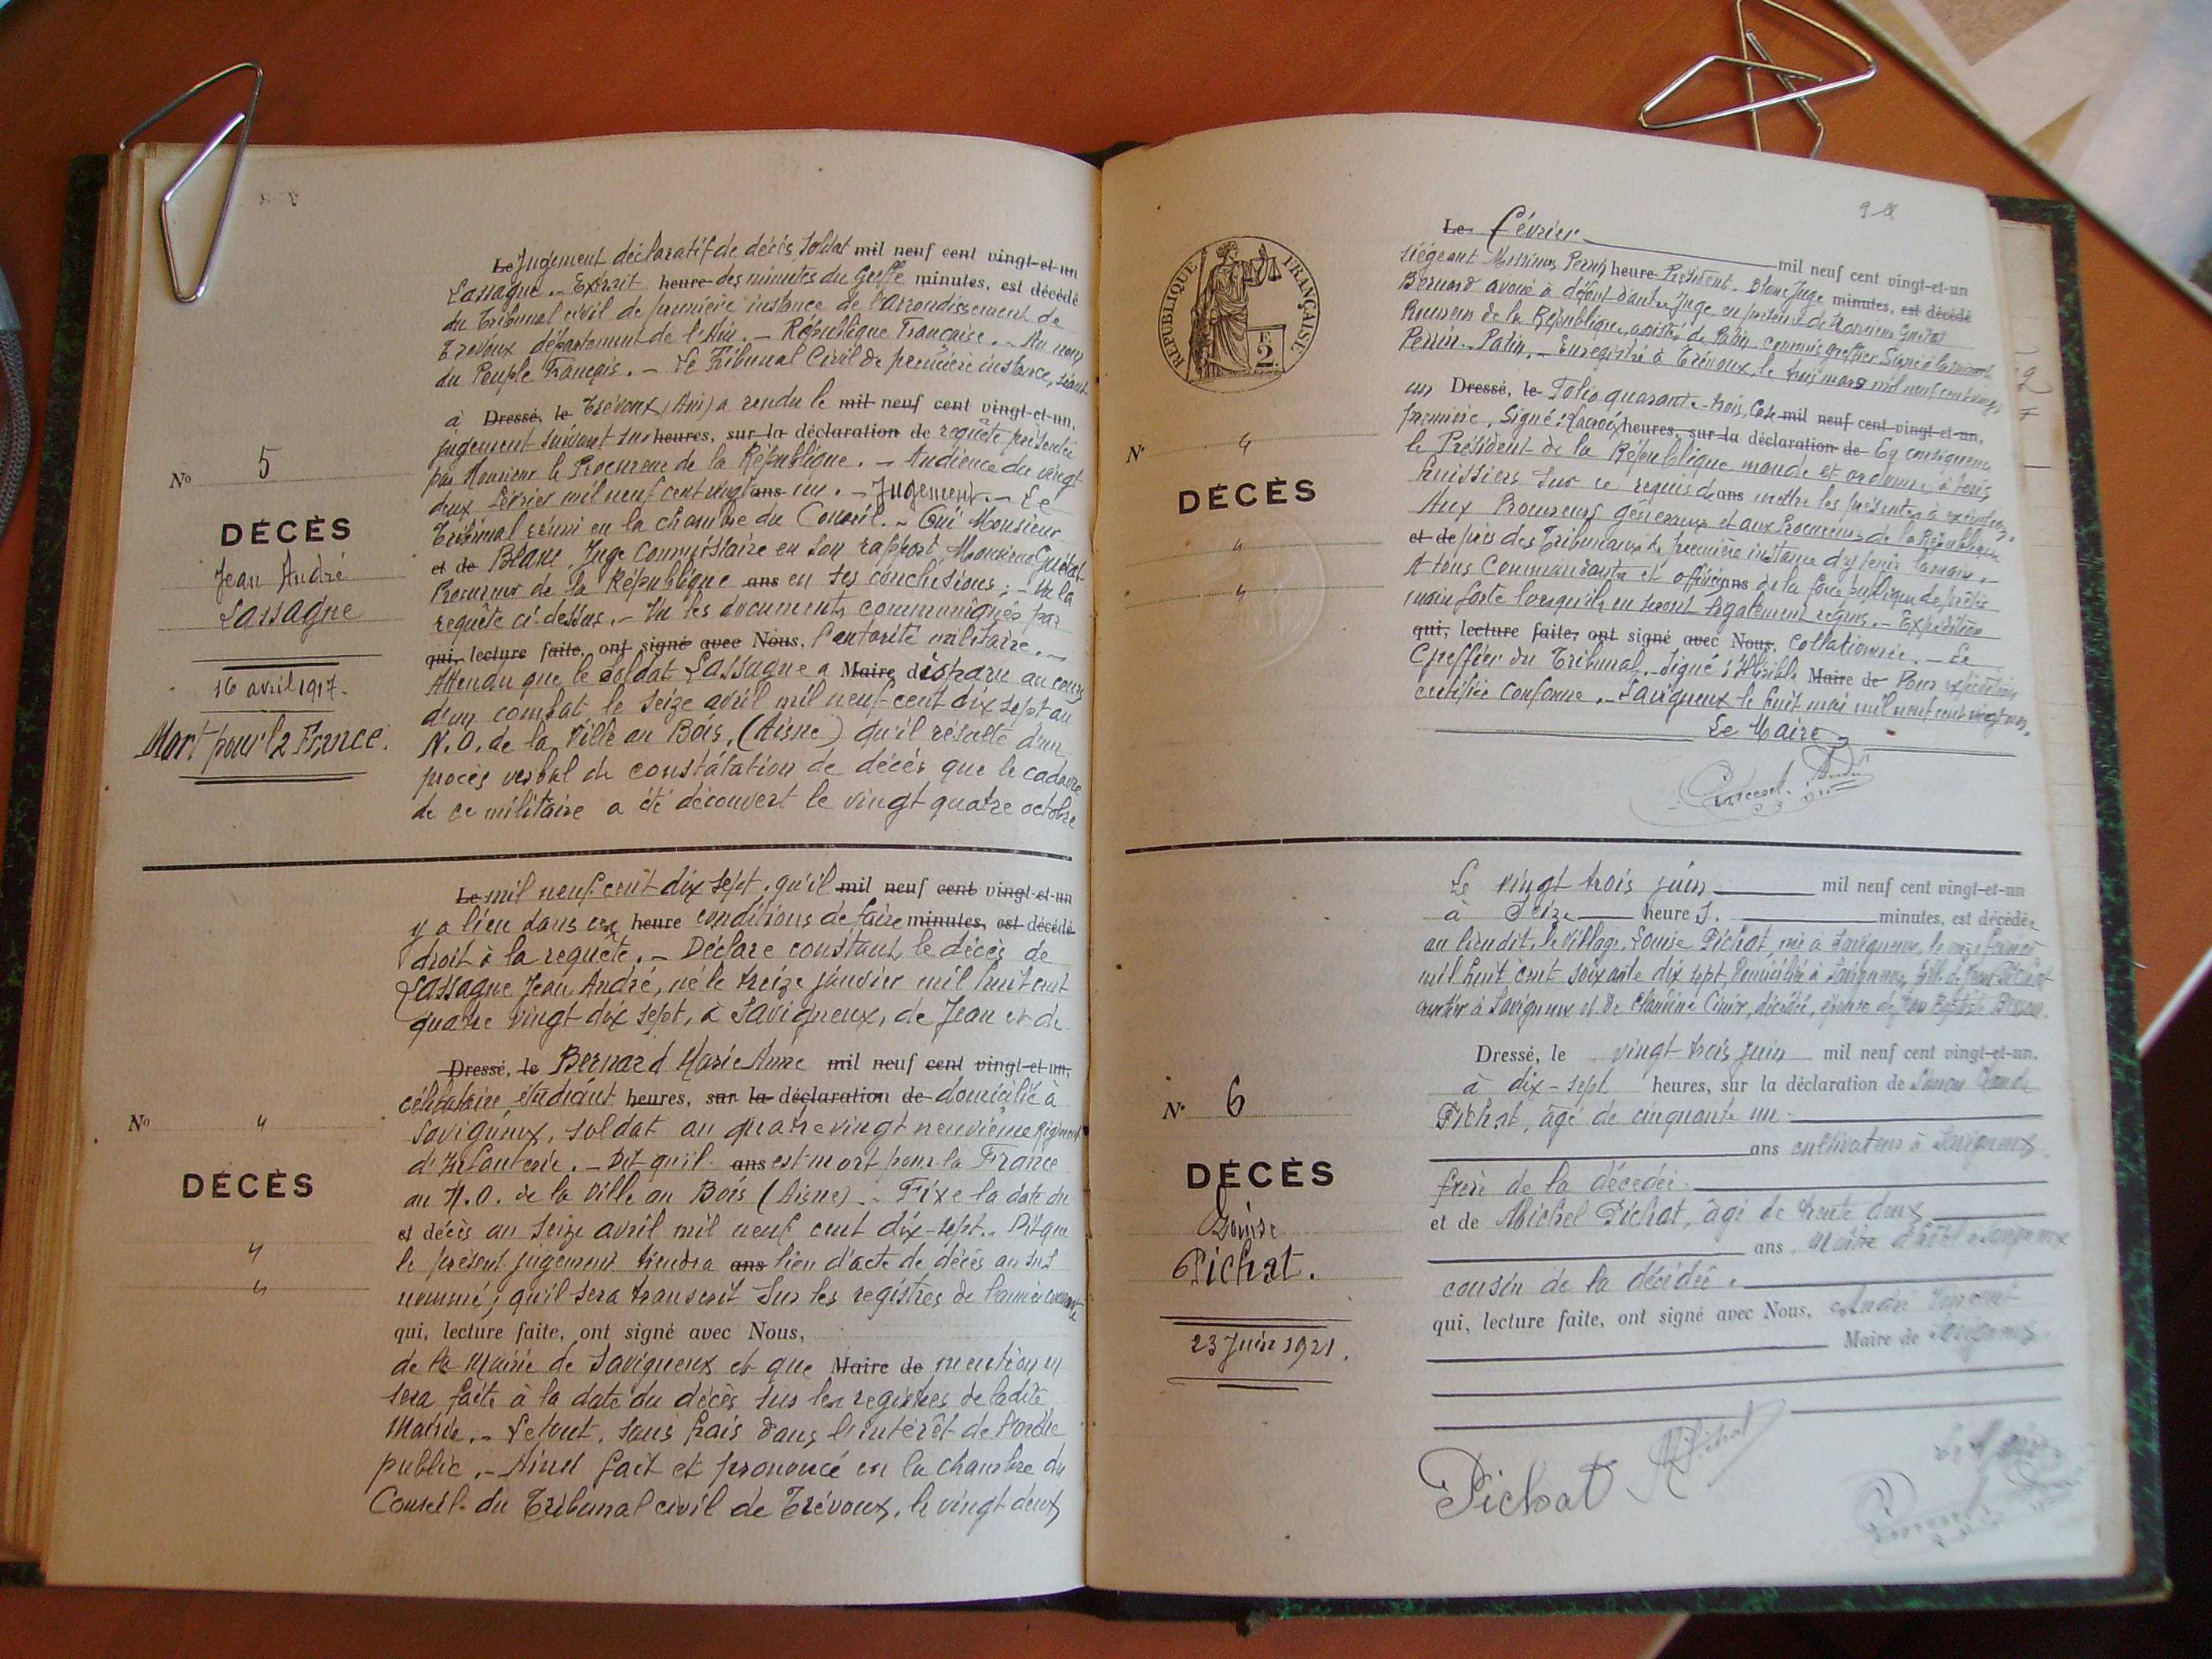 N° 5
DÉCÈS
Jean André
Lassagne
16 avril 1917.
Mort pour la France.
Le Jugement déclaratif de décès, soldat mil neuf cent vingt-et-un
Lassagne. – Extrait heure des minutes du Greffe minutes, est décédé
du Tribunal civil de première instance de l'arrondissement de
Trévoux département de l'Ain. – République Française. – Au nom
du Peuple Français. – Le Tribunal Civil de première instance, séant
à Dressé, le Trévoux (Ain) a rendu le mil neuf cent vingt-et-un,
jugement suivant sur heures, sur la déclaration de requête présentée
par Monsieur le Procureur de la République. – Audience du vingt
deux février mil neuf cent vingt ans un. – Jugement. – Le
Tribunal réuni en la chambre du Conseil. – Ouï Monsieur
et de Blanc, Juge Commissaire en son rapport, Monsieur Guétat
Procureur de la République ans en ses conclusions; – Vu la
requête ci-dessus. – Vu les documents communiqués par
qui, lecture faite, ont signé avec Nous, l'autorité militaire. –
Attendu que le soldat Lassagne a Maire disparu au cours
d'un combat le seize avril mil neuf cent dix sept au
N. O. de la Ville au Bois, (Aisne) qu'il résulte d'un
procès verbal de constatation de décès que le cadavre
de ce militaire a été découvert le vingt quatre octobre
N° "
DÉCÈS
"
"
Le mil neuf cent dix sept, qu'il mil neuf cent vingt-et-un
y a lieu dans ces heure conditions de faire minutes, est décédé
droit à la requête. – Déclare constant, le décès de
Lassagne Jean André, né le treize janvier mil huit cent
quatre vingt dix sept, à Savigneux, de Jean et de
Dressé, le Bernard Marie Anne mil neuf cent vingt-et-un,
célibataire, étudiant heures, sur la déclaration de domicilié à
Savigneux, soldat au quatre vingt neuvième Régiment
d'Infanterie. – Dit qu'il ans est mort pour la France
au N. O. de la Ville au Bois (Aisne). – Fixe la date du
et décès au seize avril mil neuf cent dix-sept. – Dit que
le présent jugement tiendra ans lieu d'acte de décès au sus
nommé; qu'il sera transcrit sur les registres de l'année courante
qui, lecture faite, ont signé avec Nous,
de la Mairie de Savigneux et que Maire de mention en
sera faite à la date du décès sur les registres de ladite
Mairie. – Le tout, sans frais dans l'intérêt de l'ordre
public. – Ainsi fait et prononcé en la chambre du
Conseil du Tribunal civil de Trévoux, le vingt deux
RÉPUBLIQUE FRANÇAISE
F.
2
N° "
DÉCÈS
"
"
Le Février mil neuf cent vingt-et-un
siégeant Messieurs Perrin heure Président. Blanc Juge minutes, est décédé
Bernard avoué à défaut d'autre Juge en présence de Monsieur Guétat
Procureur de la République, assistés de Patin commis greffier Signé à la minute
Perrin. – Patin. – Enregistré à Trévoux, le trois mars mil neuf cent vingt
un Dressé, le Folio quarante-trois, Case mil neuf cent vingt-et-un,
première. Signé: Lacroix heures, sur la déclaration de En conséquence
le Président de la République mande et ordonne à tous
huissiers sur ce requis dans mettre les présentes à exécution.
Aux Procureurs généraux et aux Procureurs de la République
et de près des Tribunaux de première instance d'y tenir la main. –
A tous Commandants et officiers ans de la force publique de prêter
main forte lorsqu'ils en seront légalement requis. – Expédition
qui, lecture faite, ont signé avec Nous, Collationnée. – Le
Greffier du Tribunal. Signé: Maire de Pour expédition
certifiée conforme. – Savigneux le huit mai mil neuf cent vingt-un.
Le Maire
N° 6
DÉCÈS
Louise
Pichat.
23 Juin 1921.
Le vingt trois juin mil neuf cent vingt-et-un
à seize heures. minutes, est décédée
au lieu dit, le Village, Louise Pichat, née à Savigneux, le onze
mil huit cent soixante dix sept, domiciliée à Savigneux, fille de Jean Pichat
rentier à Savigneux et de Claudine décédée, épouse de Jean Baptiste
Dressé, le vingt trois juin mil neuf cent vingt-et-un,
à dix-sept heures, sur la déclaration de Simon Claude
Pichat, âgé de cinquante un
ans cultivateur à Savigneux
frère de la décédée
et de Michel Pichat, âgé de trente deux
ans, Maître d'hôtel à Savigneux
cousin de la décédée.
qui, lecture faite, ont signé avec Nous, André Vincent
Maire de Savigneux
Pichat M Pichat
Le Maire